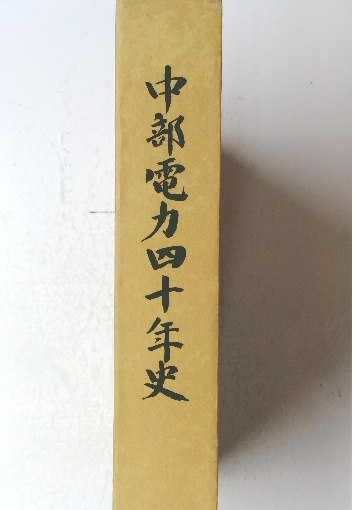 中部電力四十年史